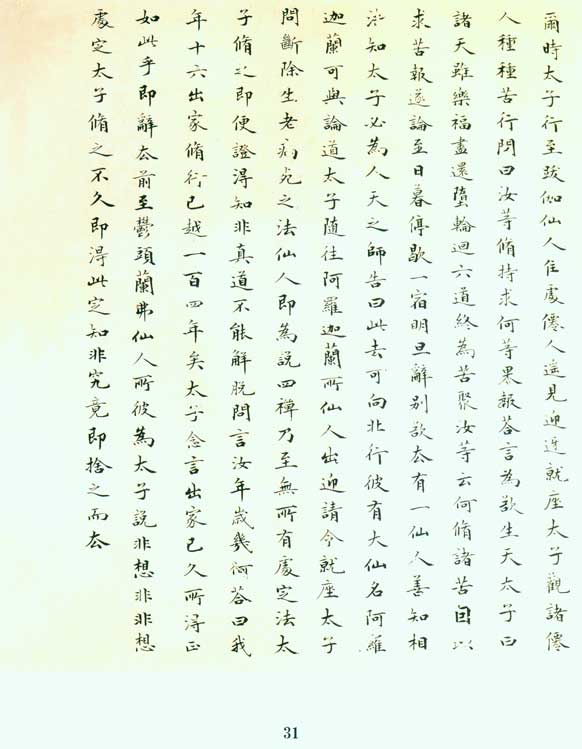 爾時太子行至跋伽仙人住處僊人遙見迎迓就座太子觀諸僊
人種種苦行問曰汝等脩持求何等果報荅言為欲生天太子曰
諸天雖樂福盡還墮輪迴六道終為苦聚汝等云何脩諸苦因以
求苦報遂論至日暮停歇一宿明旦辭别欲去有一仙人善知相
法知太子必為人天之師告曰此去可向北行彼有大仙名阿羅
迦蘭可與論道太子隨往阿羅迦蘭所仙人出迎請令就座太子
問斷除生老病死之法仙人即為說四禪乃至無所有處定法太
子脩之即便證得知非真道不能解脫問言汝年歲幾何荅曰我
年十六出家脩行已越一百四年矣太子念言出家已久所得正
如此乎即辭去前至鬱頭蘭弗仙人所彼為太子說非想非非想
處定太子脩之不久即得此定知非究竟即捨之而去
31